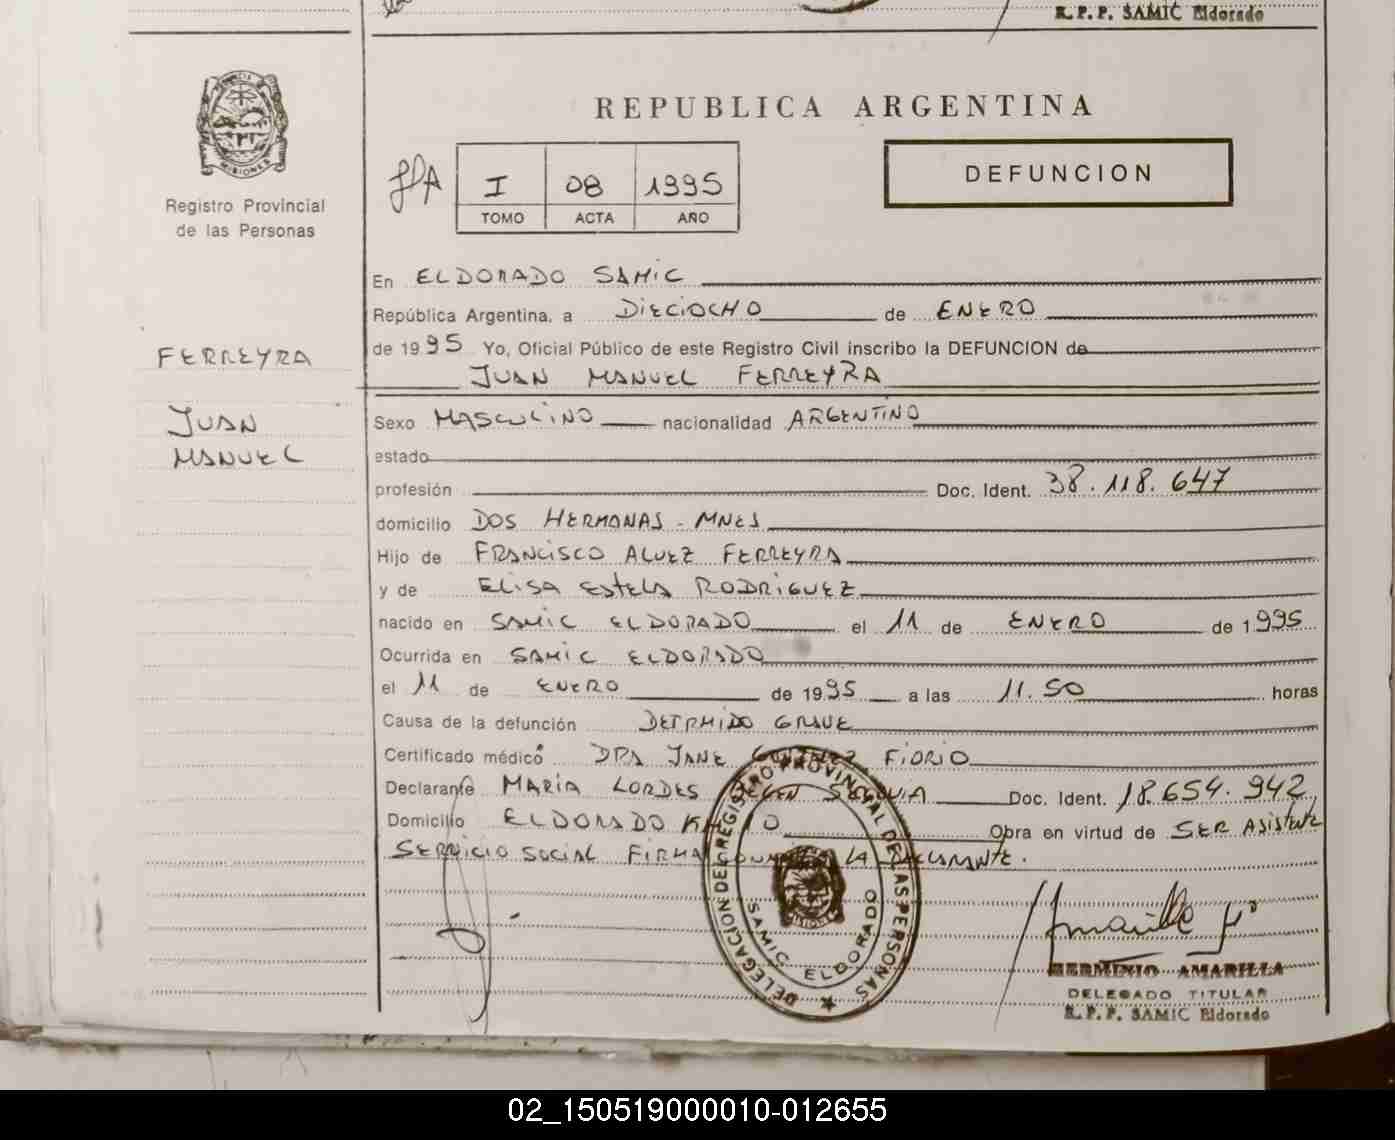 R.P.P. SAMIC Eldorado
MISIONES
Registro Provincial
de las Personas
REPUBLICA ARGENTINA
I 08 1995
TOMO ACTA AÑO
DEFUNCION
En ELDORADO SAMIC
República Argentina, a DIECIOCHO de ENERO
de 1995 Yo, Oficial Público de este Registro Civil inscribo la DEFUNCION de
JUAN MANUEL FERREYRA
FERREYRA
JUAN
MANUEL
Sexo MASCULINO nacionalidad ARGENTINO
estado
profesión Doc. Ident. 38.118.647
domicilio DOS HERMANAS - MNES
Hijo de FRANCISCO ALVEZ FERREYRA
y de ELISA ESTELA RODRIGUEZ
nacido en SAMIC ELDORADO el 11 de ENERO de 1995
Ocurrida en SAMIC ELDORADO
el 11 de ENERO de 1995 a las 11.50 horas
Causa de la defunción GRAVE
Certificado médico DRA JANE FIORIO
Declarante MARIA LORDES Doc. Ident. 18.654.942
Domicilio ELDORADO Obra en virtud de SER ASISTENTE
SERVICIO SOCIAL FIRMA LA DECLARANTE.
DELEGACION DEL REGISTRO PROVINCIAL DE LAS PERSONAS
SAMIC ELDORADO
HERMINIO AMARILLA
DELEGADO TITULAR
R.P.P. SAMIC Eldorado
02_150519000010-012655